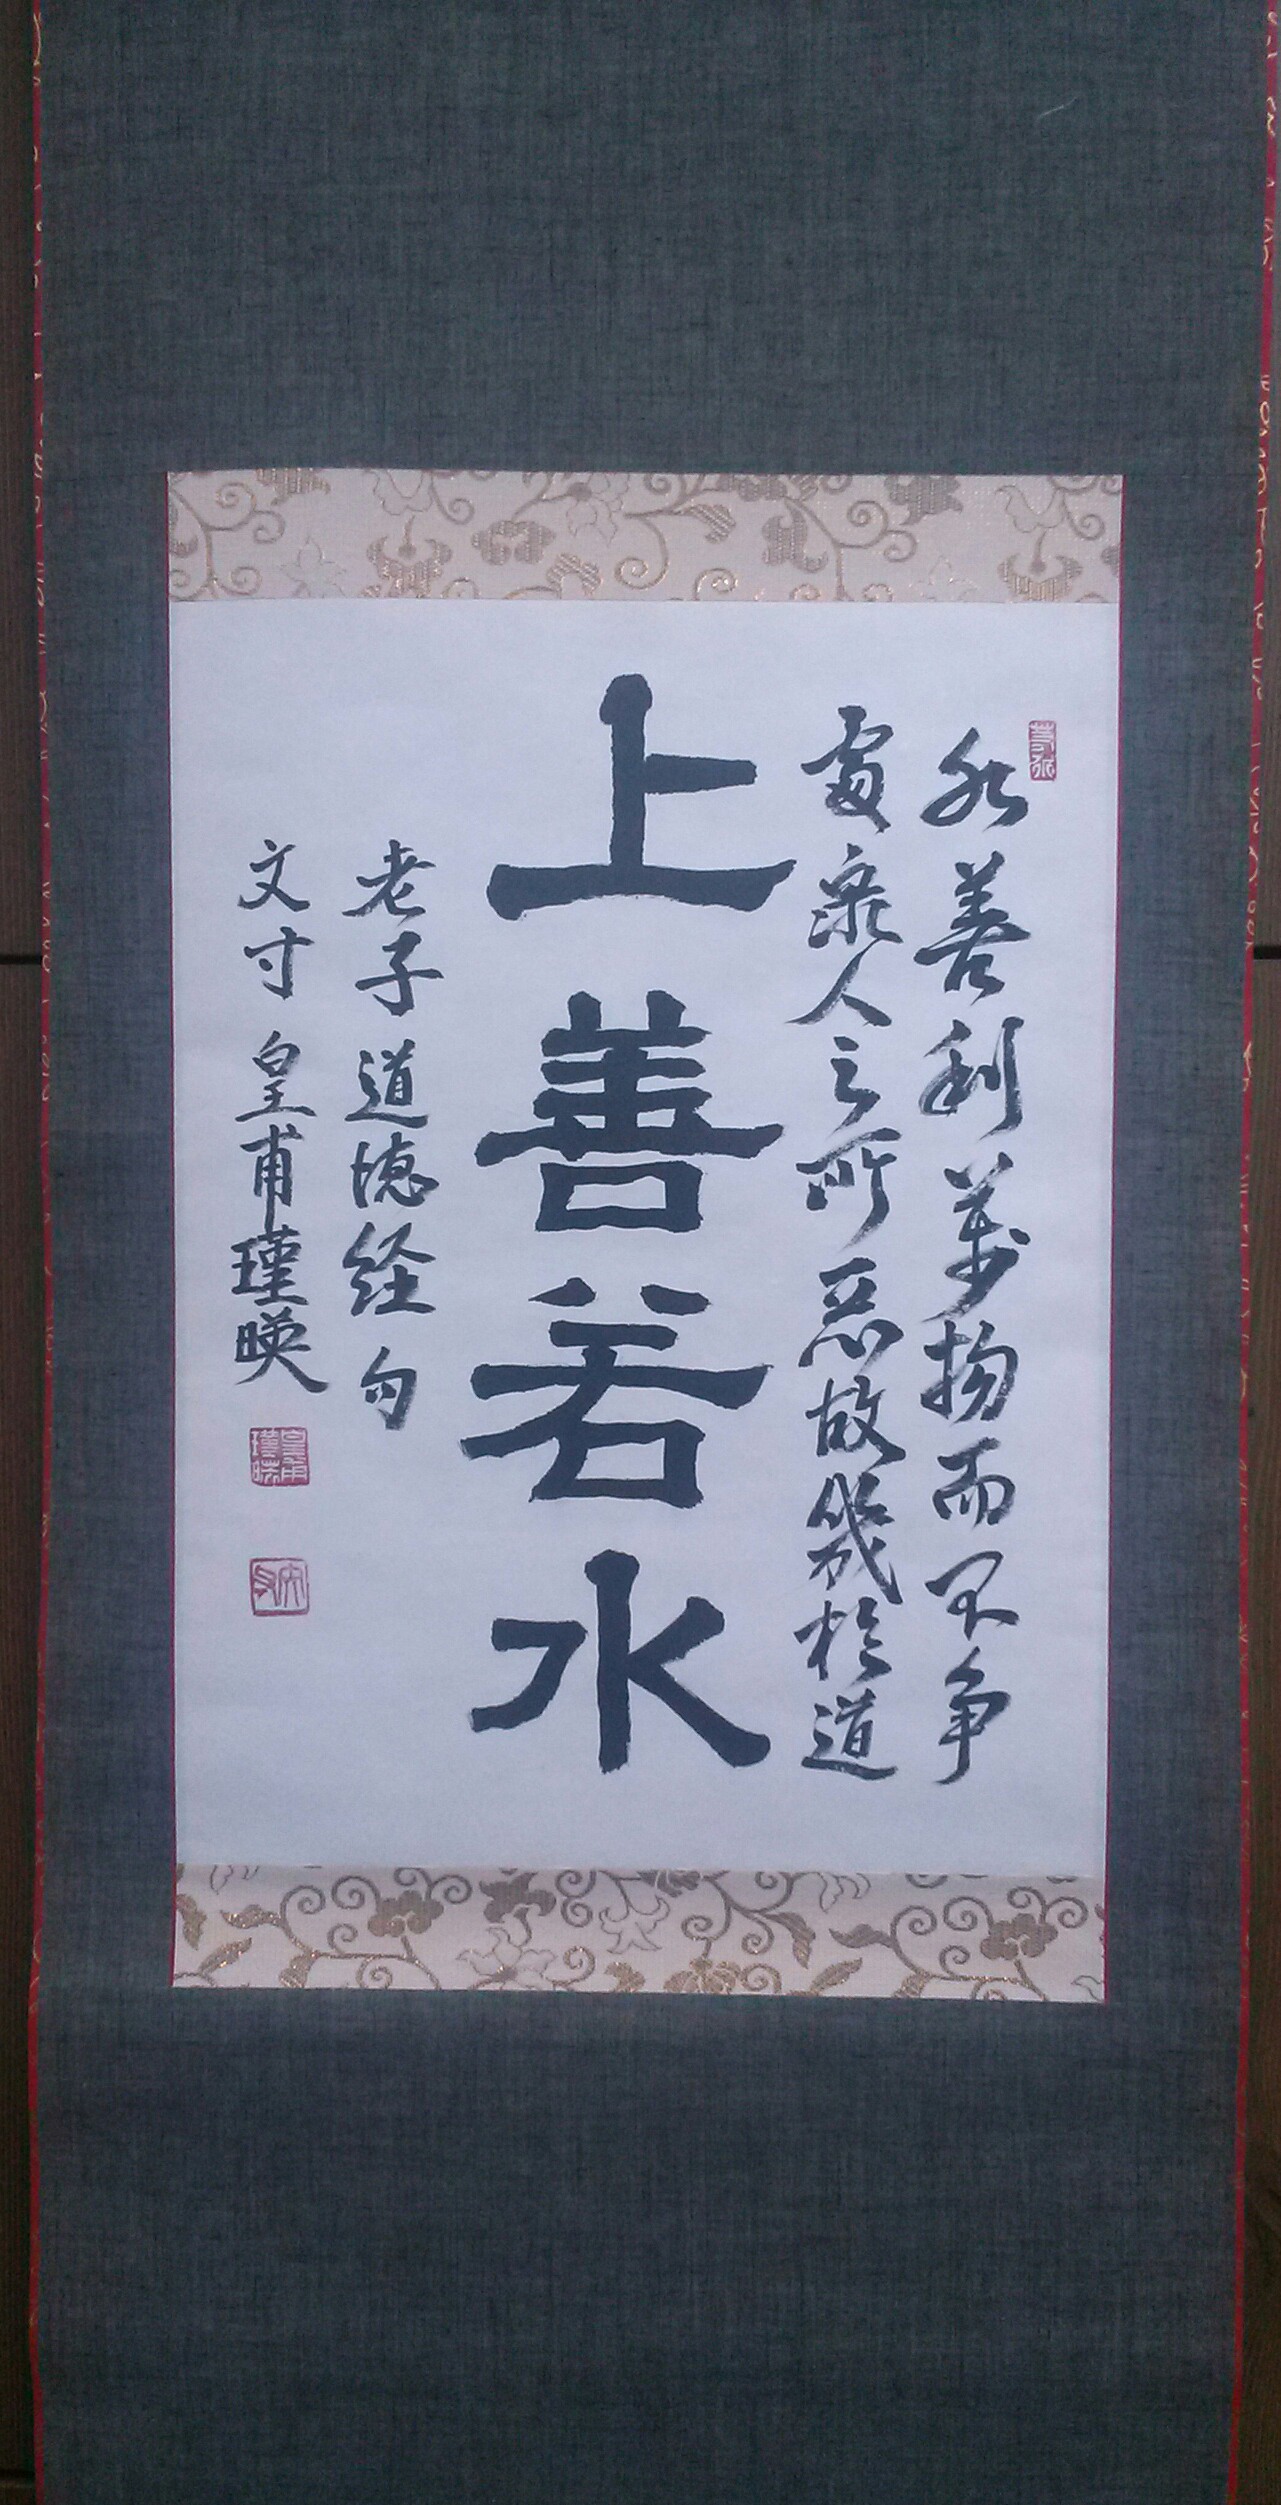 水善利萬物而不争
處衆人之所惡故幾於道
上善若水
老子道徳経句
文寸 皇甫瑾暎